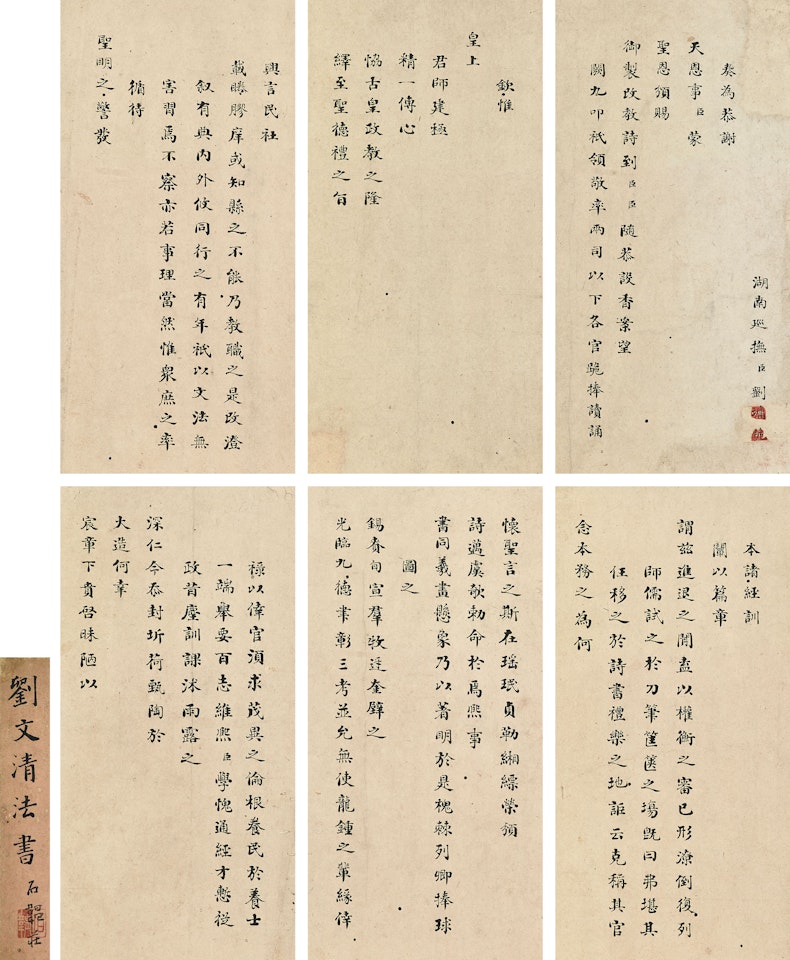 湖南巡撫臣劉
奏為恭謝
天恩事臣蒙
聖恩頒賜
御製改教詩到臣臣隨恭設香案望
闕九叩祇領敬率兩司以下各官跪捧讀誦
欽惟
皇上
君師建極
精一傳心
恊古皇政教之隆
繹至聖德禮之旨
興言民社
載睠膠庠或知縣之不能乃教職之是改澄
叙有典內外攸同行之有年祇以文法無
害習焉不察亦若事理當然惟衆庶之率
循待
聖明之警發
本請經訓
闡以篇章
謂茲進退之閒盍以權衡之審已形潦倒復列
師儒試之於刀筆筐篋之塲旣曰弗堪其
任移之於詩書禮樂之地詎云克稱其官
念本務之為何
懷聖言之斯在瑶珉貞勒緗縹榮頒
詩邁虞歌勑命於焉熙事
書同羲畫懸象乃以著明於是槐棘列卿捧球
圖之
錫賚旬宣羣牧迓奎璧之
光臨九德聿彰三考並允無使龍鍾之輩緣倖
祿以倖官須求茂異之倫根養民於養士
一端舉要百志維熙臣學愧通經才慙從
政昔塵訓課沐雨露之
深仁今忝封圻荷甄陶於
大造何幸
宸章下賁啓昧陋以
劉文清法書